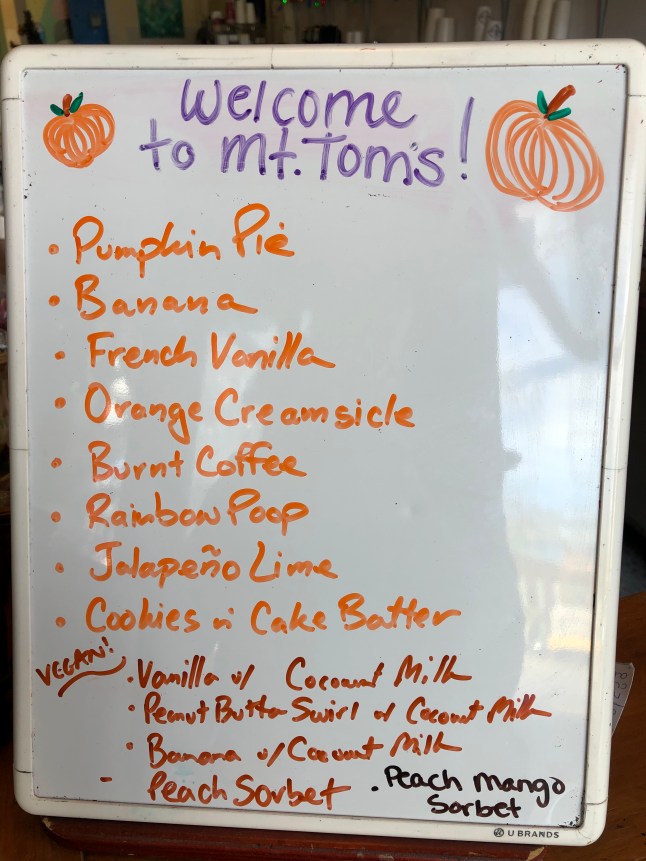 Welcome
to Mt. Tom's!
• Pumpkin Pie
• Banana
• French Vanilla
• Orange Creamsicle
• Burnt Coffee
• Rainbow Poop
• Jalapeño Lime
• Cookies n' Cake Batter
VEGAN!
• Vanilla w/ Coconut Milk
• Peanut Butter Swirl w/ Coconut Milk
• Banana w/ Coconut Milk
- Peach Sorbet
• Peach Mango
Sorbet
U BRANDS